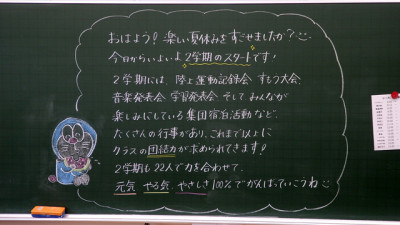 おはよう! 楽しい夏休みをすごせましたか?
今日からいよいよ2学期のスタートです!
2学期には、陸上運動記録会、すもう大会、
音楽発表会、学習発表会、そして、みんなが
楽しみにしている集団宿泊活動など、
たくさんの行事があり、これまで以上に
クラスの団結力が求められてきます!
2学期も22人で力を合わせて、
元気 やる気 やさしさ100%でがんばっていこうね